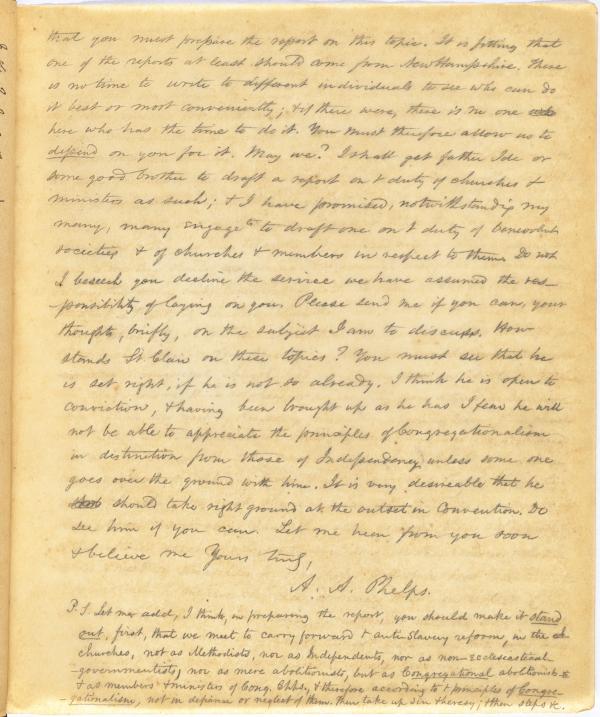 that you must prepare the report on this topic. It is fitting that
one of the reports at least should come from New Hampshire. There
is no time to write to different individuals to see who can do
it best or most conveniently; & if there were, there is no one who
here who has the time to do it. You must therefore allow us to
depend on you for it. May we? I shall get father Ide or
some good brother to draft a report on t duty of churches &
ministers as such; & I have promised, notwithstanding my
many, many engagets to draft one on t duty of benevolent
societies & of churches & members in respect to them. Do not
I beseech you decline the service we have assumed the res-
-ponsibility of laying on you. Please send me if you can, your
thoughts, briefly, on the subject I am to discuss. How
stands St. Clair on these topics? You must see that he
is set right, if he is not so already. I think he is open to
conviction, & having been brought up as he has I fear he will
not be able to appreciate the principles of Congregationalism
in distinction from those of Independency, unless some one
goes over the ground with him. It is very desireable that he
should take right ground at the outset in Convention. Do
see him if you can. Let me hear from you soon
& believe me Yours truly,
A. A. Phelps.
P.S. Let me add, I think, in preparing the report, you should make it stand
out, first, that we meet to carry forward t anti-slavery reform, in the
churches, not as Methodists, nor as Independents, nor as non-ecclesiastical
-governmentists, nor as mere abolitionists, but as Congregational abolitionists
& as members & ministers of Cong. Chhs., & therefore according to t principles of Congre-
-gationalism, not in defiance or neglect of them. Then take up in theresy, then steps &c.